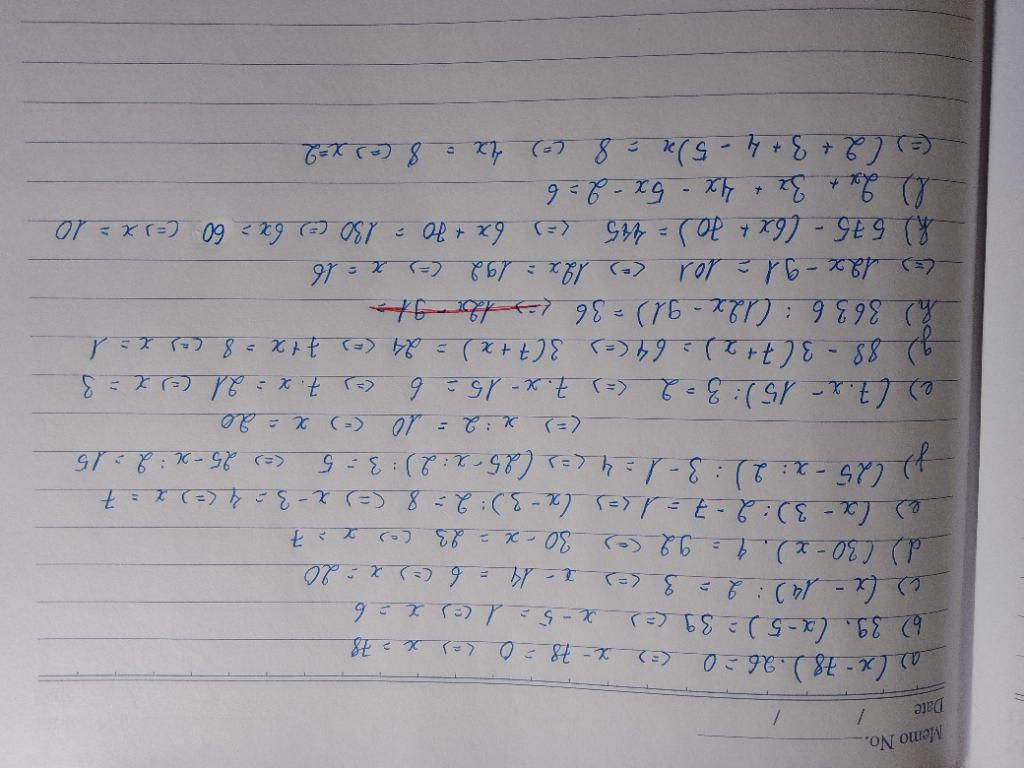 Memo No.
Date / /
a) (x - 78). 26 = 0 <=> x - 78 = 0 <=> x = 78
b) 39. (x - 5) = 39 <=> x - 5 = 1 <=> x = 6
c) (x - 14) : 2 = 3 <=> x - 14 = 6 <=> x = 20
d) (30 - x). 4 = 92 <=> 30 - x = 23 <=> x = 7
e) (x - 3) : 2 - 7 = 1 <=> (x - 3) : 2 = 8 <=> x - 3 = 4 <=> x = 7
f) (25 - x : 2) : 3 - 1 = 4 <=> (25 - x : 2) : 3 = 5 <=> 25 - x : 2 = 15
<=> x : 2 = 10 <=> x = 20
e) (7. x - 15) : 3 = 2 <=> 7. x - 15 = 6 <=> 7. x = 21 <=> x = 3
g) 88 - 3(7 + x) = 64 <=> 3(7 + x) = 24 <=> 7 + x = 8 <=> x = 1
h) 3636 : (12x - 91) = 36 <=> 12x - 91 =
<=> 12x - 91 = 101 <=> 12x = 192 <=> x = 16
k) 575 - (6x + 70) = 445 <=> 6x + 70 = 130 <=> 6x = 60 <=> x = 10
l) 2x + 3x + 4x - 5x - 2 = 6
<=> (2 + 3 + 4 - 5)x = 8 <=> 4x = 8 <=> x = 2